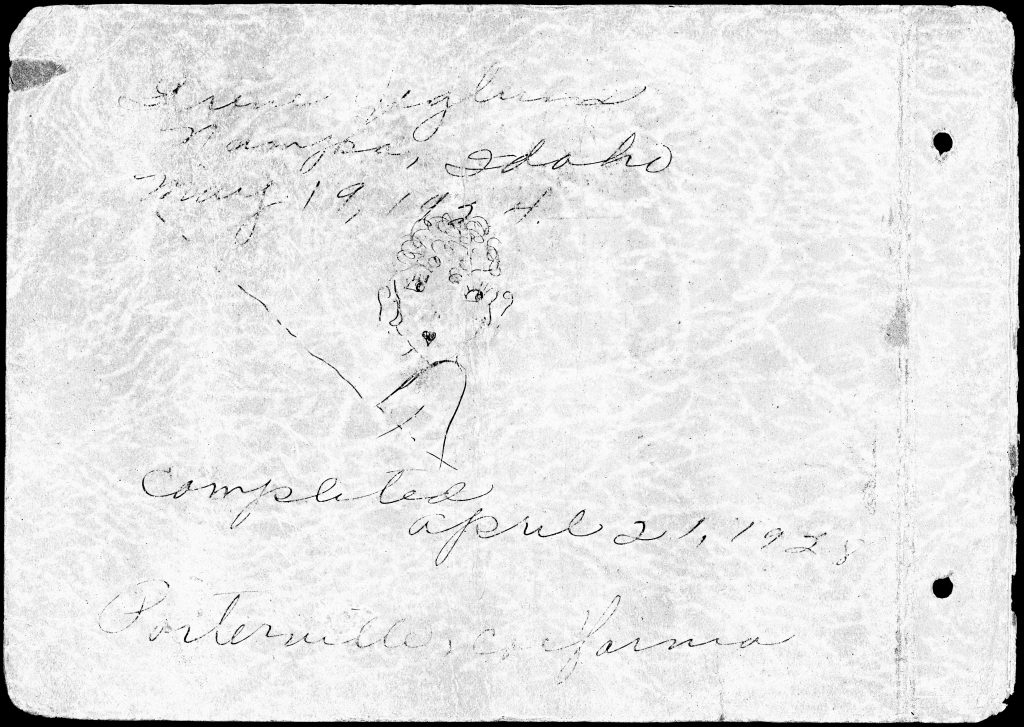 Irene
Nampa, Idaho
May 19, 1924.
completed
april 21, 1928
Porterville, California